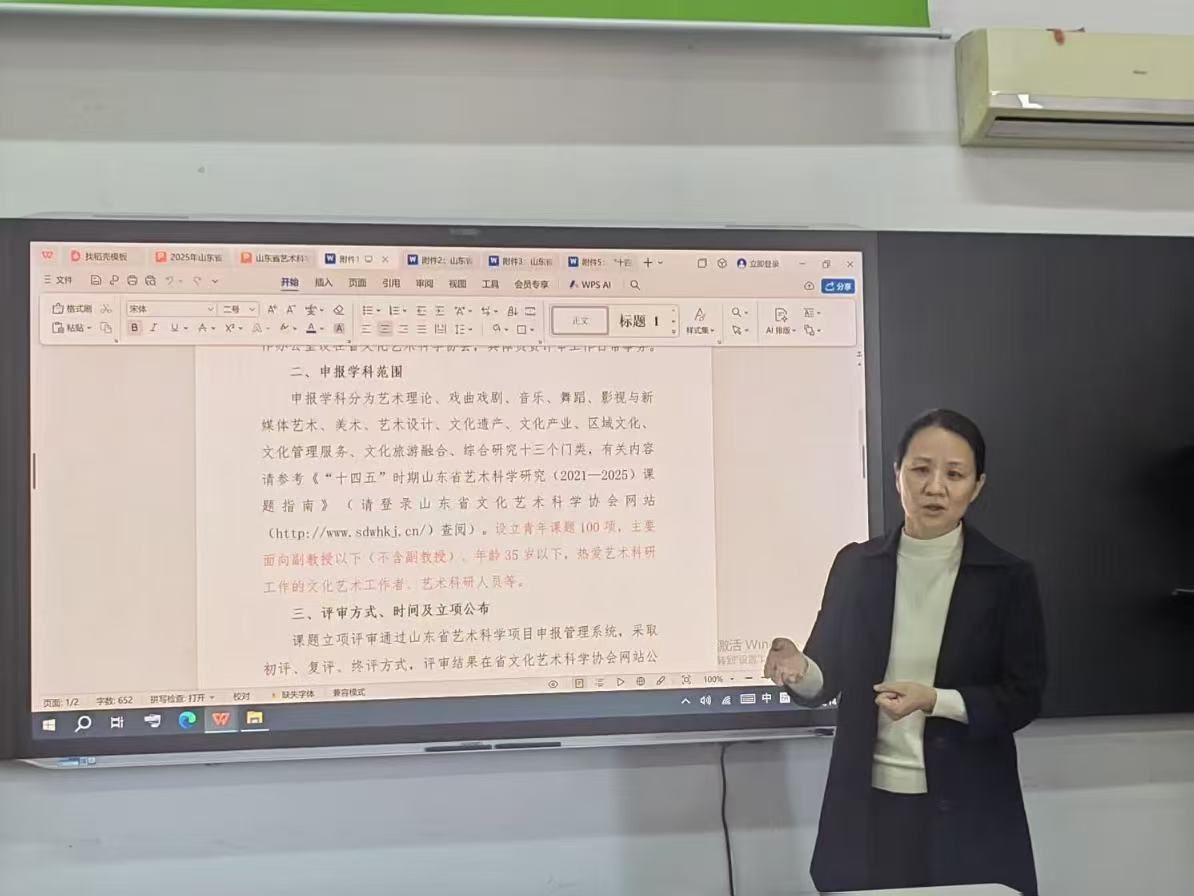 找稻壳模板
2025年山东省
山东省艺术科
附件1
附件2：山东省
附件3：山东省
附件5："十四
立即登录
文件
开始
插入
页面
引用
审阅
视图
工具
会员专享
WPS AI
分享
格式刷
粘贴
宋体
二号
正文
标题 1
样式集
AI 排版
二、申报学科范围
申报学科分为艺术理论、戏曲戏剧、音乐、舞蹈、影视与新
媒体艺术、美术、艺术设计、文化遗产、文化产业、区域文化、
文化管理服务、文化旅游融合、综合研究十三个门类，有关内容
请参考《“十四五”时期山东省艺术科学研究（2021—2025）课
题指南》（请登录山东省文化艺术科学协会网站
（http://www.sdwhkj.cn/）查阅）。设立青年课题 100 项，主要
面向副教授以下（不含副教授）、年龄 35 岁以下，热爱艺术科研
工作的文化艺术工作者、艺术科研人员等。
三、评审方式、时间及立项公布
课题立项评审通过山东省艺术科学项目申报管理系统，采取
初评、复评、终评方式，评审结果在省文化艺术科学协会网站公
激活 Win
转到"设置"
页面: 1/2
字数: 652
拼写检查: 打开
校对
缺失字体
兼容模式
100%
中